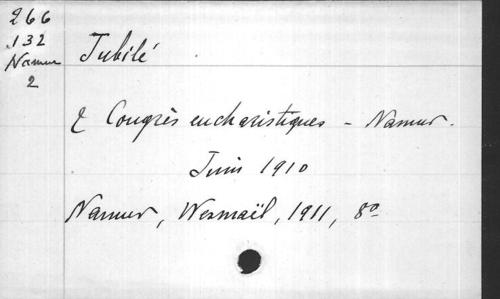 266
.132
Namur
2
Jubilé
& Congrès eucharistiques - Namur.
Juin 1910
Namur, Wesmaël, 1911, 8º